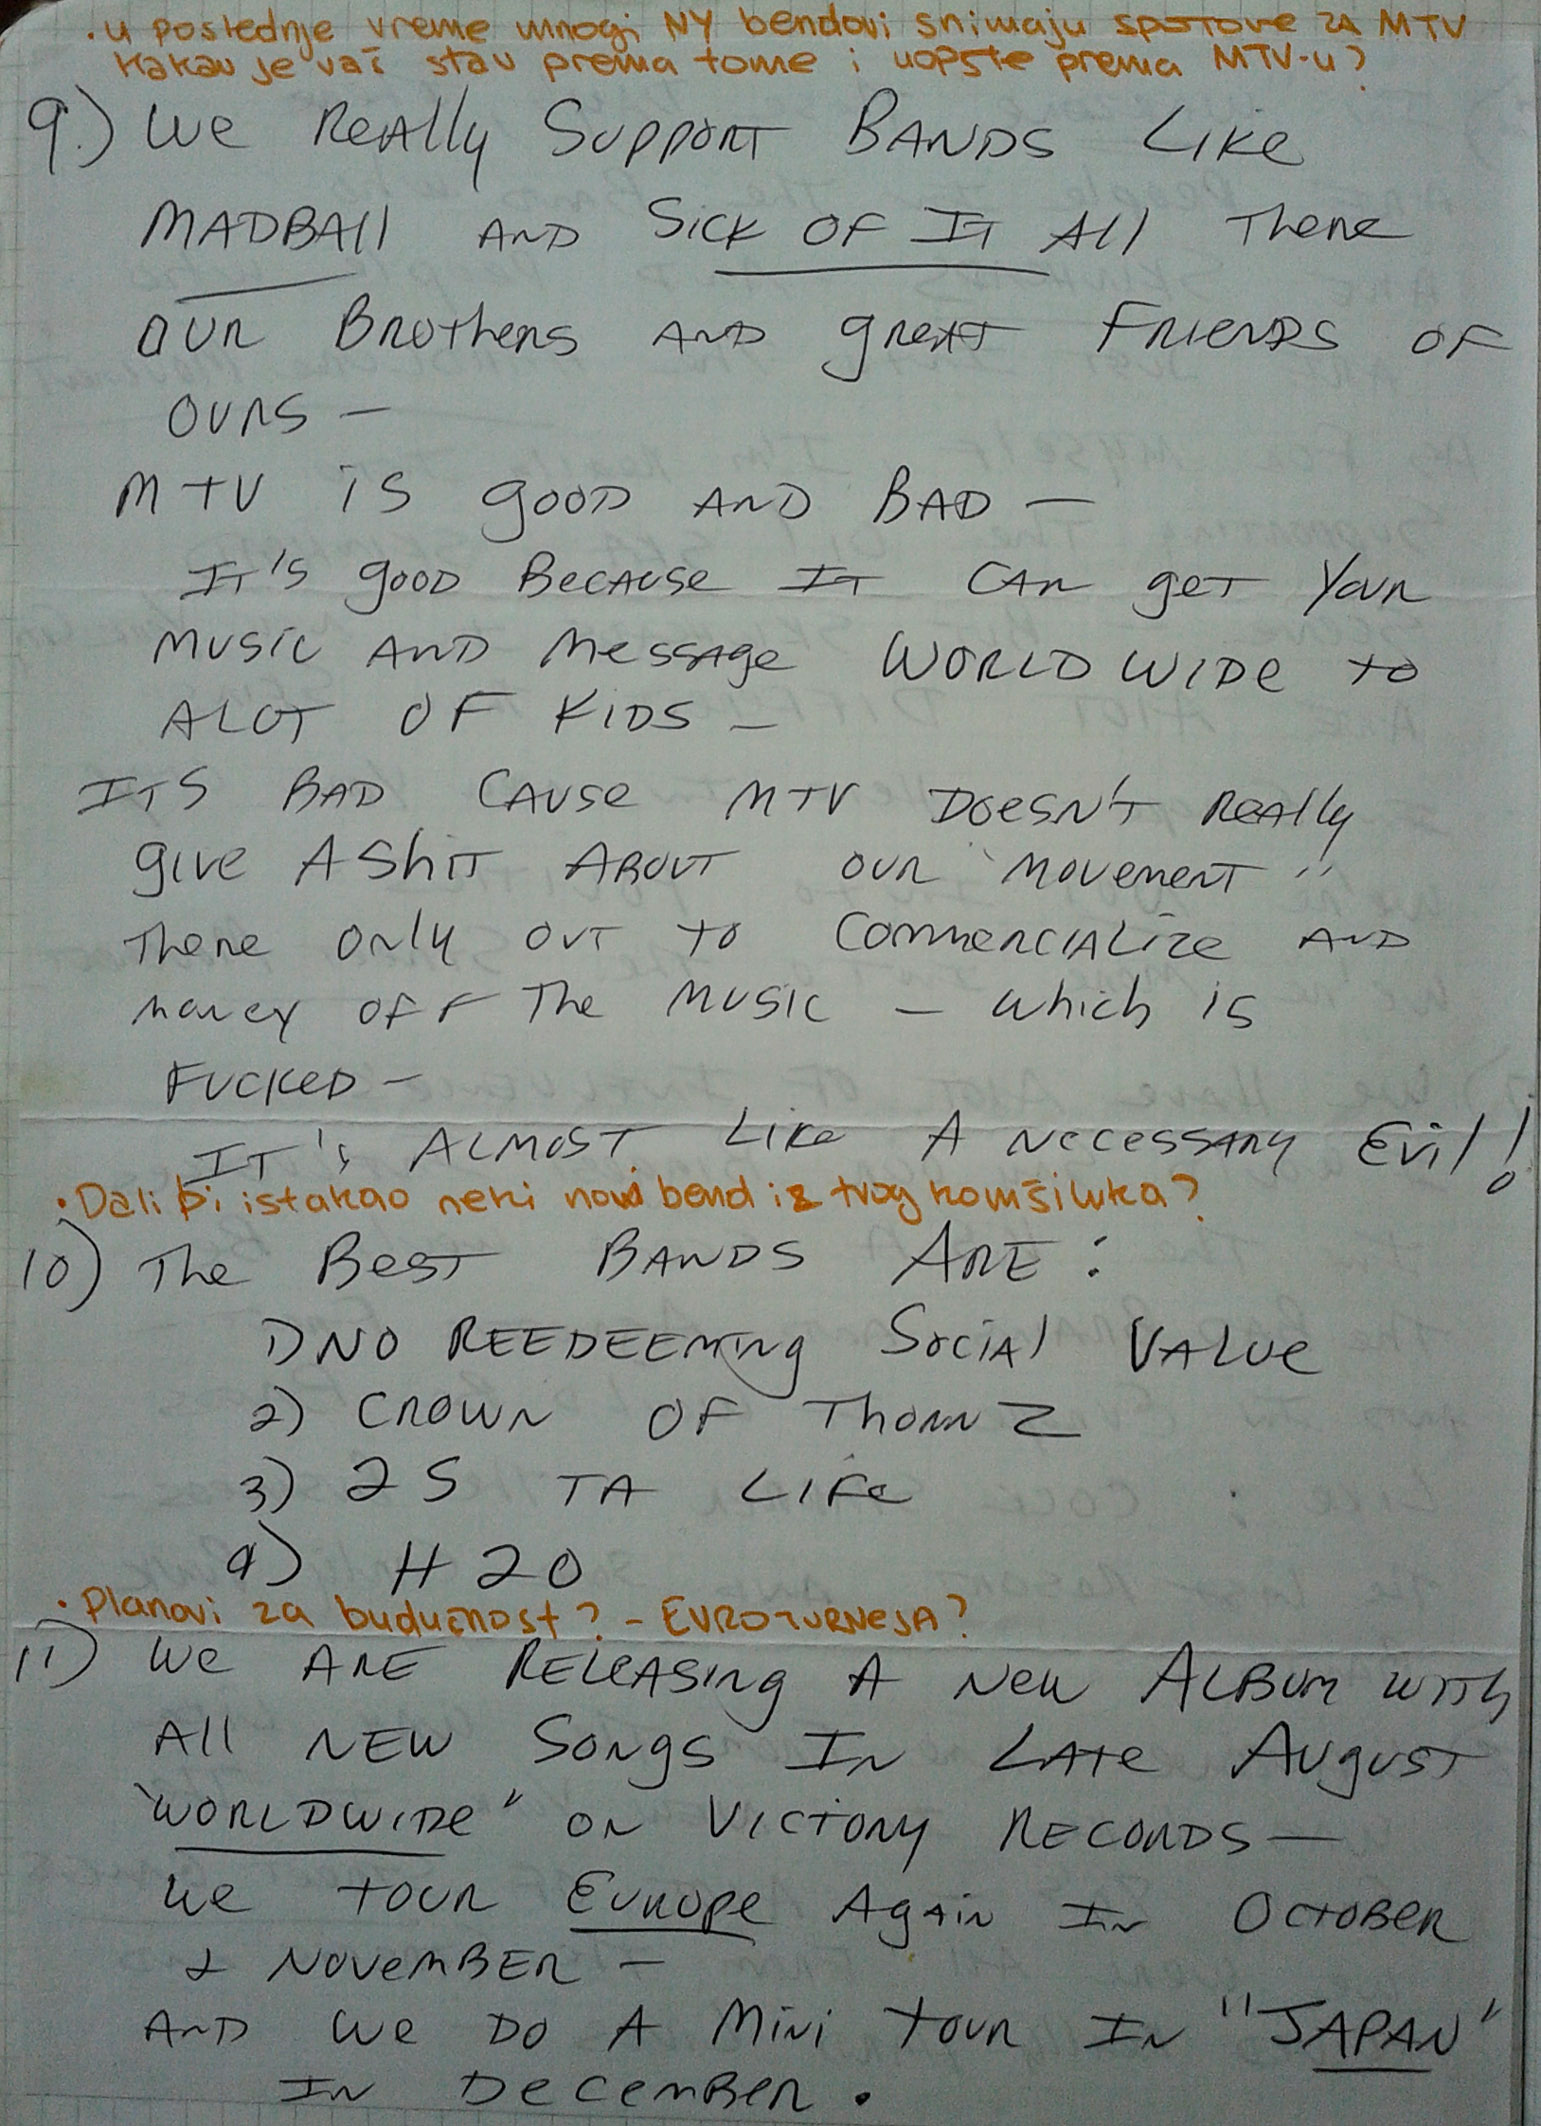 • u poslednje vreme mnogi NY bendovi snimaju spotove za MTV
Kakav je vaš stav prema tome i uopšte prema MTV-u?
9.) We Really Support BANDS Like
MADBAll AND Sick OF IT All There
OUR Brothers AND great FRIENDS OF
OURS —
MTV is good AND BAD —
IT'S good Because IT CAN get Your
MUSIC AND Message WORLDWIDE to
ALOT OF KIDS —
ITS BAD CAUSE MTV DOESN'T Really
give A Shit ABOUT OUR "MOVEMENT"
There only out to Commercialize AND
money off The MUSIC — which is
FUCKED —
IT'S ALMOST Like A Necessary Evil!
• Dali bi istakao neki novi bend iz tvog komšiluka?
10) The Best BANDS ARE:
1) NO REEDEEMINg Social Value
2) CROWN OF ThornZ
3) 25 TA LIFe
4) H2O
• Planovi za budućnost? - EVROTURNEJA?
11) We ARE RELEASINg A New ALBUM With
All NEW Songs In LATE August
"WORLDWIDE" on Victory RECORDS —
We TOUR EUROPE Again In OCTOBER
& NOVEMBER —
AND We Do A Mini Tour In "JAPAN"
In DeceMBER.